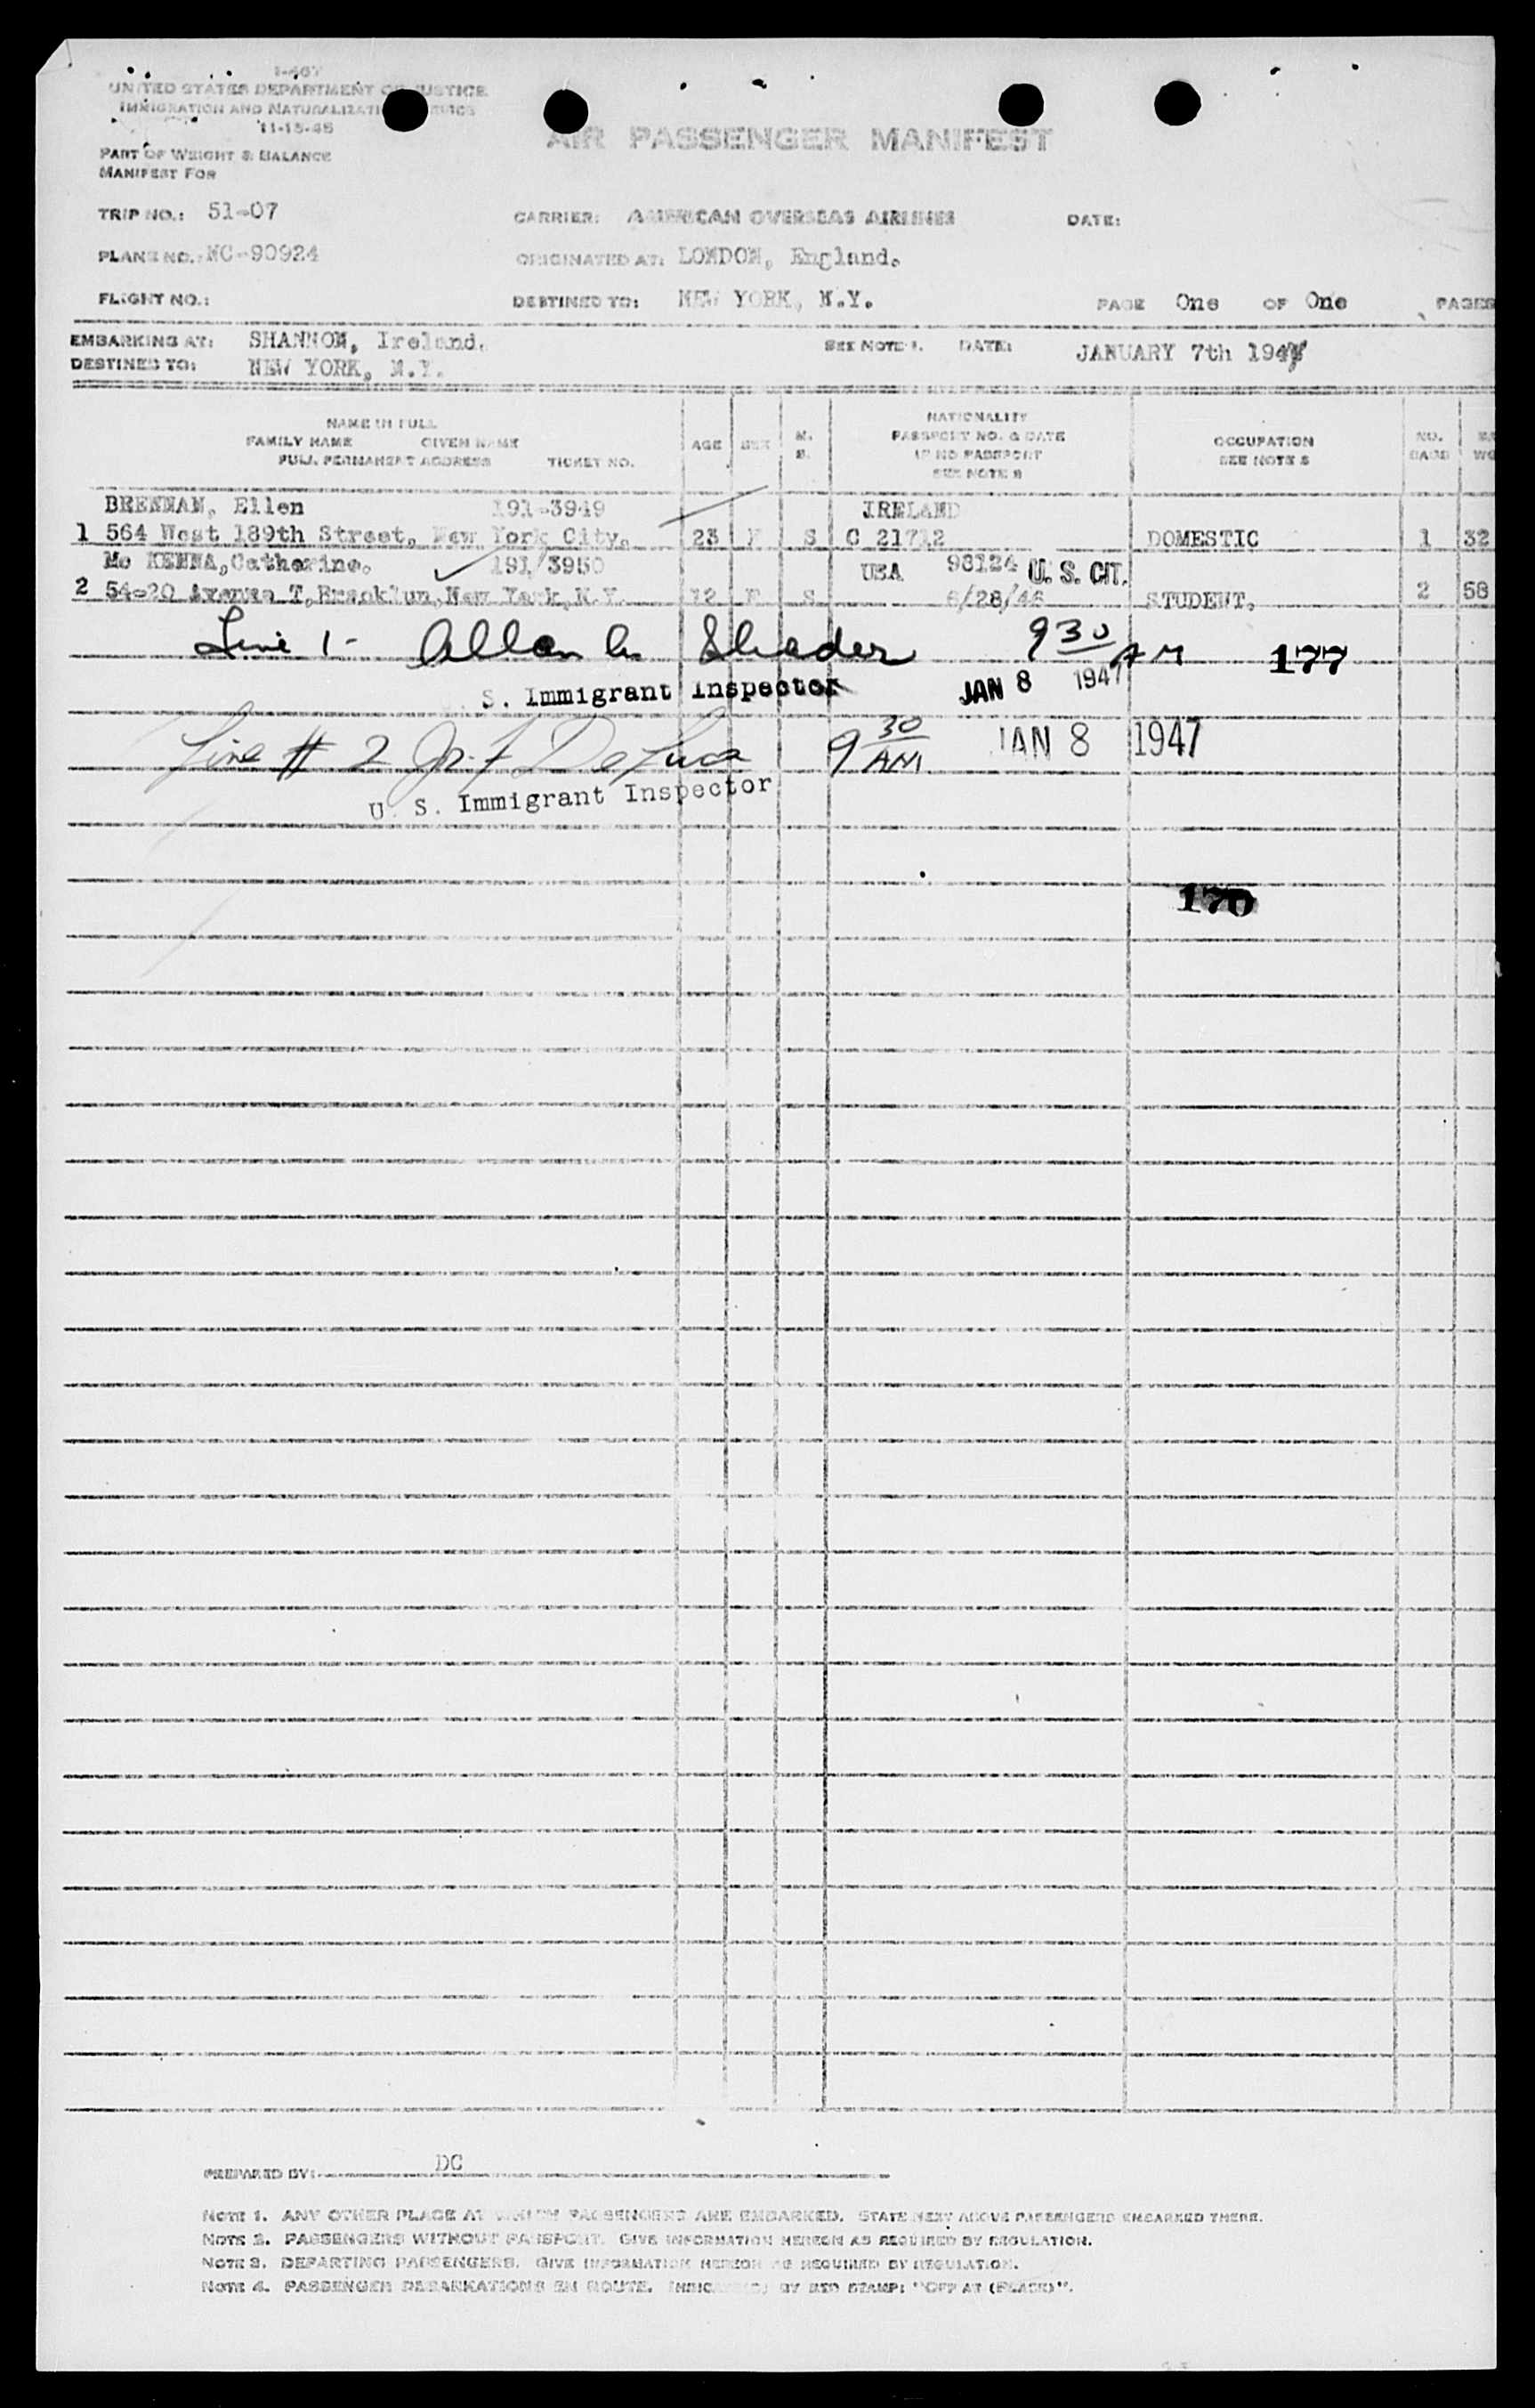 I-467
UNITED STATES DEPARTMENT OF JUSTICE
IMMIGRATION AND NATURALIZATION
11-15-45
AIR PASSENGER MANIFEST
PART OF WEIGHT & BALANCE
MANIFEST FOR
TRIP NO.: 51-07 CARRIER: AMERICAN OVERSEAS AIRLINES DATE:
PLANE NO.: NC-90924 ORIGINATED AT: LONDON, England.
FLIGHT NO.: DESTINED TO: NEW YORK, N.Y. PAGE One OF One PAGES
EMBARKING AT: SHANNON, Ireland. SEE NOTE 1. DATE: JANUARY 7th 1947
DESTINED TO: NEW YORK, N.Y.
NAME IN FULL NATIONALITY
FAMILY NAME GIVEN NAME AGE SEX M. PASSPORT NO. & DATE OCCUPATION NO.
FULL PERMANENT ADDRESS TICKET NO. S. IF NO PASSPORT SEE NOTE 3 BAGS
SEE NOTE 2
BRENNAN, Ellen 191-3949 IRELAND
1 564 West 189th Street, New York City. 23 F S C 21712 DOMESTIC 1 32
Mc KENNA, Catherine. 191/3950 USA 98124 U. S. CIT.
2 54-20 Avenue T, Brooklun, New York, N.Y. 12 F S 6/28/46 STUDENT. 2 58
Line 1- Allan Shader 9 30 AM 177
S. Immigrant Inspector JAN 8 1947
Line # 2 De Luca 9 30 AM JAN 8 1947
U. S. Immigrant Inspector
170
PREPARED BY: DC
NOTE 1. ANY OTHER PLACE AT WHICH PASSENGERS ARE EMBARKED. STATE NEXT ABOVE PASSENGERS EMBARKED THERE.
NOTE 2. PASSENGERS WITHOUT PASSPORT. GIVE INFORMATION HEREON AS REQUIRED BY REGULATION.
NOTE 3. DEPARTING PASSENGERS. GIVE INFORMATION HEREON AS REQUIRED BY REGULATION.
NOTE 4. PASSENGER DEBARKATIONS EN ROUTE. INDICATED BY RED STAMP: "OFF AT (PLACE)".